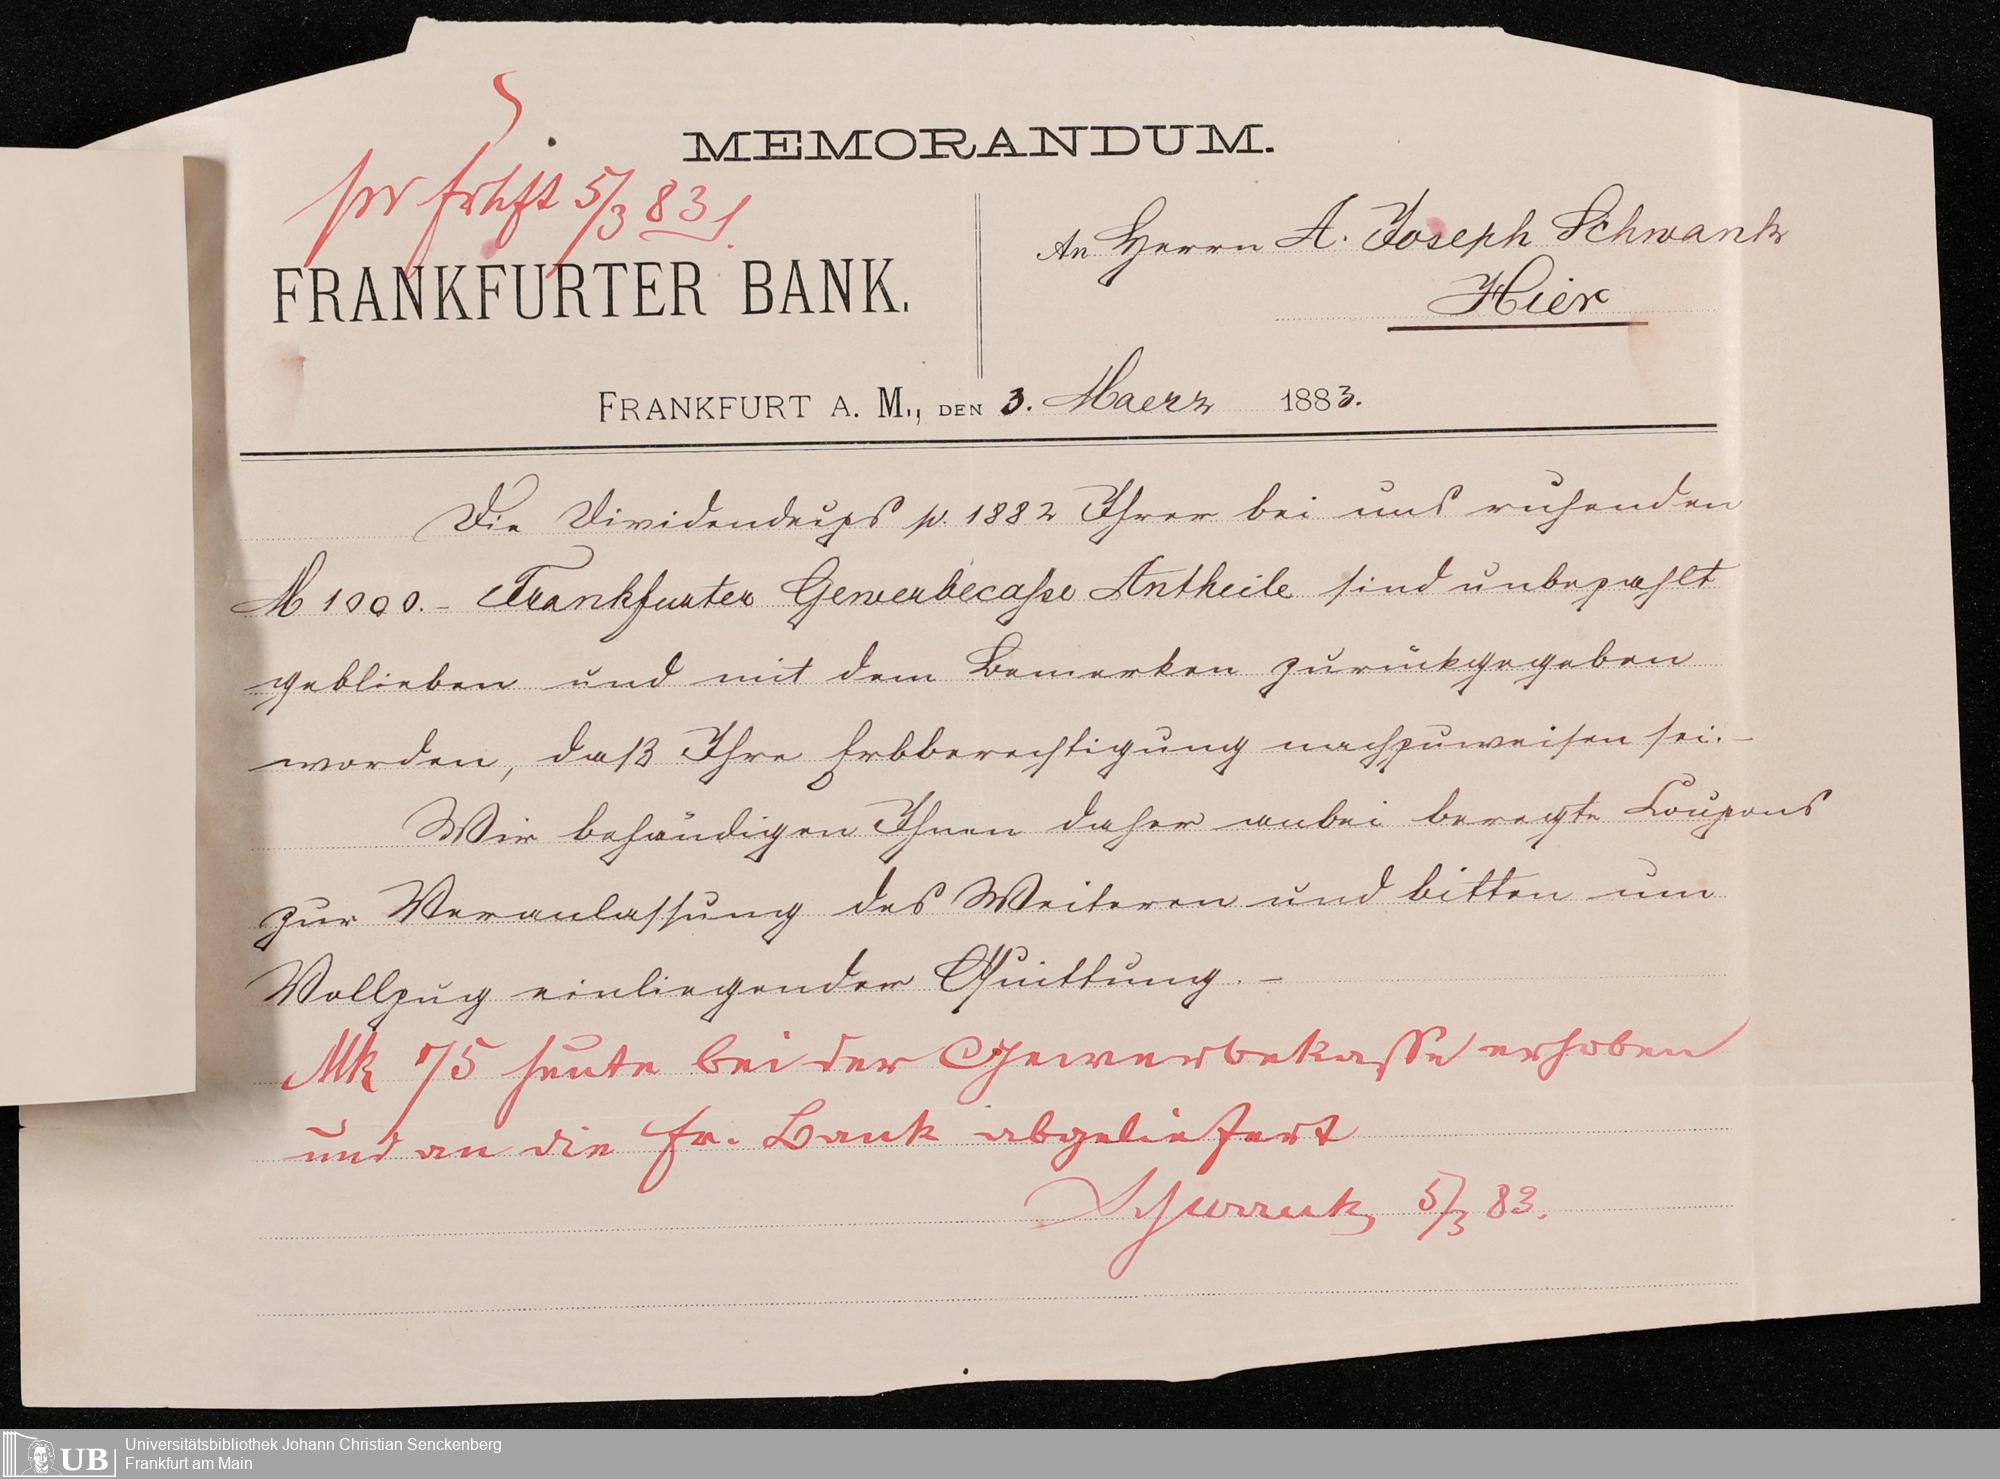 MEMORANDUM.
pr 5/3 83
FRANKFURTER BANK.
An Herrn A. Joseph Schwank
Hier
FRANKFURT A. M., DEN 3. Maerz 1883.
Die Dividendecps p. 1882 Ihrer bei uns ruhenden
M 1000.- Frankfurter Gewerbecasse Antheile sind unbezahlt
geblieben und mit dem Bemerken zurückgegeben
worden, daß Ihre Erbberechtigung nachzuweisen sei.-
Wir behändigen Ihnen daher anbei beregte Coupons
zur Veranlassung des Weiteren und bitten um
Vollzug einliegender Quittung.-
Mk 75 heute bei der Gewerbekasse erhoben
und an die Fr. Bank abgeliefert
Schwank 5/3 83.
UB
Universitätsbibliothek Johann Christian Senckenberg
Frankfurt am Main